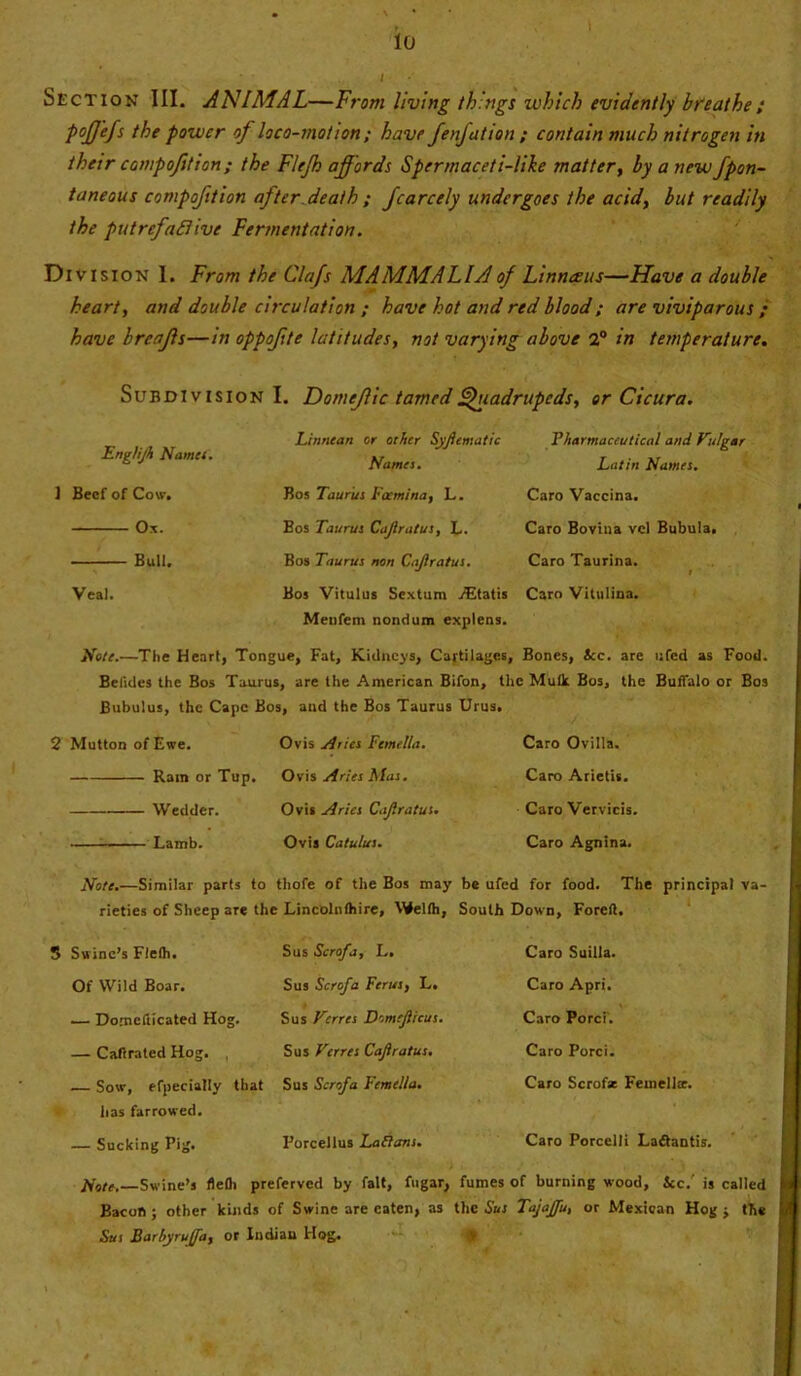 10
Section III. ANIMAL—From living things which evidently breathe;
poſſeſs the power of loco-motion; have ſenſation; contain much nitrogen in
their compoſition; the Fleſh affords Spermaceti-like matter, by a new ſpon-
taneous compoſition after death; ſcarcely undergoes the acid, but readily
the putrefactive Fermentation.
Division I. From the Claſs MAMMALIA of Linnæus—Have a double
heart, and double circulation; have hot and red blood; are viviparous;
have breaſts—in oppoſite latitudes, not varying above 2° in temperature.
Subdivision I. Domeſtic tamed Quadrupeds, or Cicura.
Engliſh Names. Linnean or other Syſtematic Names. Pharmaceutical and Vulgar Latin Names.
1 Beef of Cow. Bos Taurus Fœmina, L. Caro Vaccina.
—— Ox. Bos Taurus Caſtratus, L. Caro Bovina vel Bubula.
—— Bull. Bos Taurus non Caſtratus. Caro Taurina.
Veal. Bos Vitulus Sextum Ætatis Caro Vitulina.
Menſem nondum explens.
Note.—The Heart, Tongue, Fat, Kidneys, Cartilages, Bones, &c. are uſed as Food.
Beſides the Bos Taurus, are the American Biſon, the Muſk Bos, the Buffalo or Bos
Bubulus, the Cape Bos, and the Bos Taurus Urus.
2 Mutton of Ewe. Ovis Aries Femella. Caro Ovilla.
—— Ram or Tup. Ovis Aries Mas. Caro Arietis.
—— Wedder. Ovis Aries Caſtratus. Caro Vervicis.
—— Lamb. Ovis Catulus. Caro Agnina.
Note.—Similar parts to thoſe of the Bos may be uſed for food. The principal va-
rieties of Sheep are the Lincolnſhire, Welſh, South Down, Foreſt.
3 Swine's Fleſh. Sus Scrofa, L. Caro Suilla.
Of Wild Boar. Sus Scrofa Ferus, L. Caro Apri.
— Domeſticated Hog. Sus Verres Domeſticus. Caro Porci.
— Caſtrated Hog. Sus Verres Caſtratus. Caro Porci.
— Sow, eſpecially that Sus Scrofa Femella. Caro Scrofæ Femellæ.
has farrowed.
— Sucking Pig. Porcellus Lactans. Caro Porcelli Lactantis.
Note.—Swine's fleſh preſerved by ſalt, ſugar, fumes of burning wood, &c. is called
Bacon; other kinds of Swine are eaten, as the Sus Tajaſſu, or Mexican Hog; the
Sus Barbyruſſa, or Indian Hog.